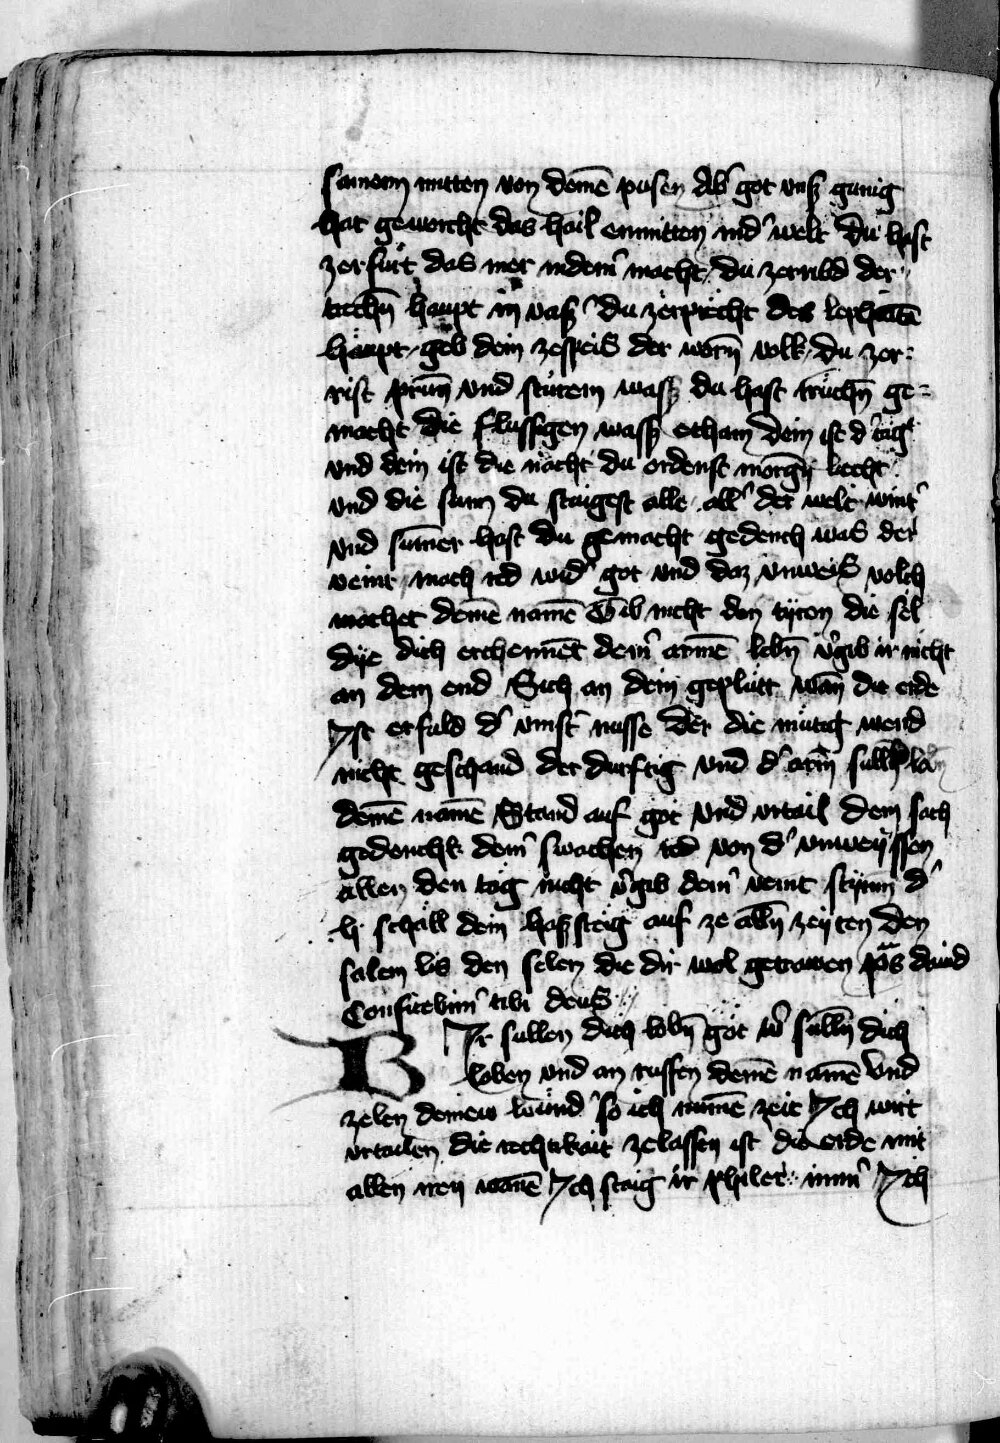 samem mitten von deinē pusen Ab' got uns' kunig
hat geworcht das hail enmitten in d' welt Du hast
zerfürt das mer in dein' macht du zertribd der
trachn̄ haupt in wass' du zerpricht des
haupt geb dein zespeis der morn̄ volk du zer⸗
rist prun̄ vnd sturem wass' du hast truchn̄ ge⸗
macht die flussigen wass' etham Dein ist d' tag
vnd dein ist die nacht du ordenst morgn̄ liecht
vnd die sunn du alle all' der welt wint'
vnd sum̄er hast du gemacht gedench was der
veint mach red wid' got vnd daz vnweis volch
machet deinē namē Gib nicht den tyren die sel
dye dich erchennēt dein' armē lebn̄ v'gib ir nicht
an dem end Sich an dein geplütt wan̄ die erde
Jst erfuld d' vinst'nusse der die mütig werd
nicht geschand der durftig vnd d' arm̄ sullen lobn̄
deinē namē Stand auf got vnd vrtail dein sach
gedenchk dein' swachen red von d' vnweyssen
allen den tag nicht v'gib dein' veint stym̄ d'
h schall dein hass steig auf ze alln̄ zeyten den
salem bis den selen die dir wol getrawen pōs dauid
Confitebim' tibi deus
W Jr sullen dich lobn̄ got w' sulln̄ dich
loben vnd an ruffen deinē namē Vnd
zelen deinew wund' so ich nimē zeit Jch wirt
vrtailen die rechtikait zelassen ist die erde mit
allen iren wanē Jch staig ir philer imm' Jch